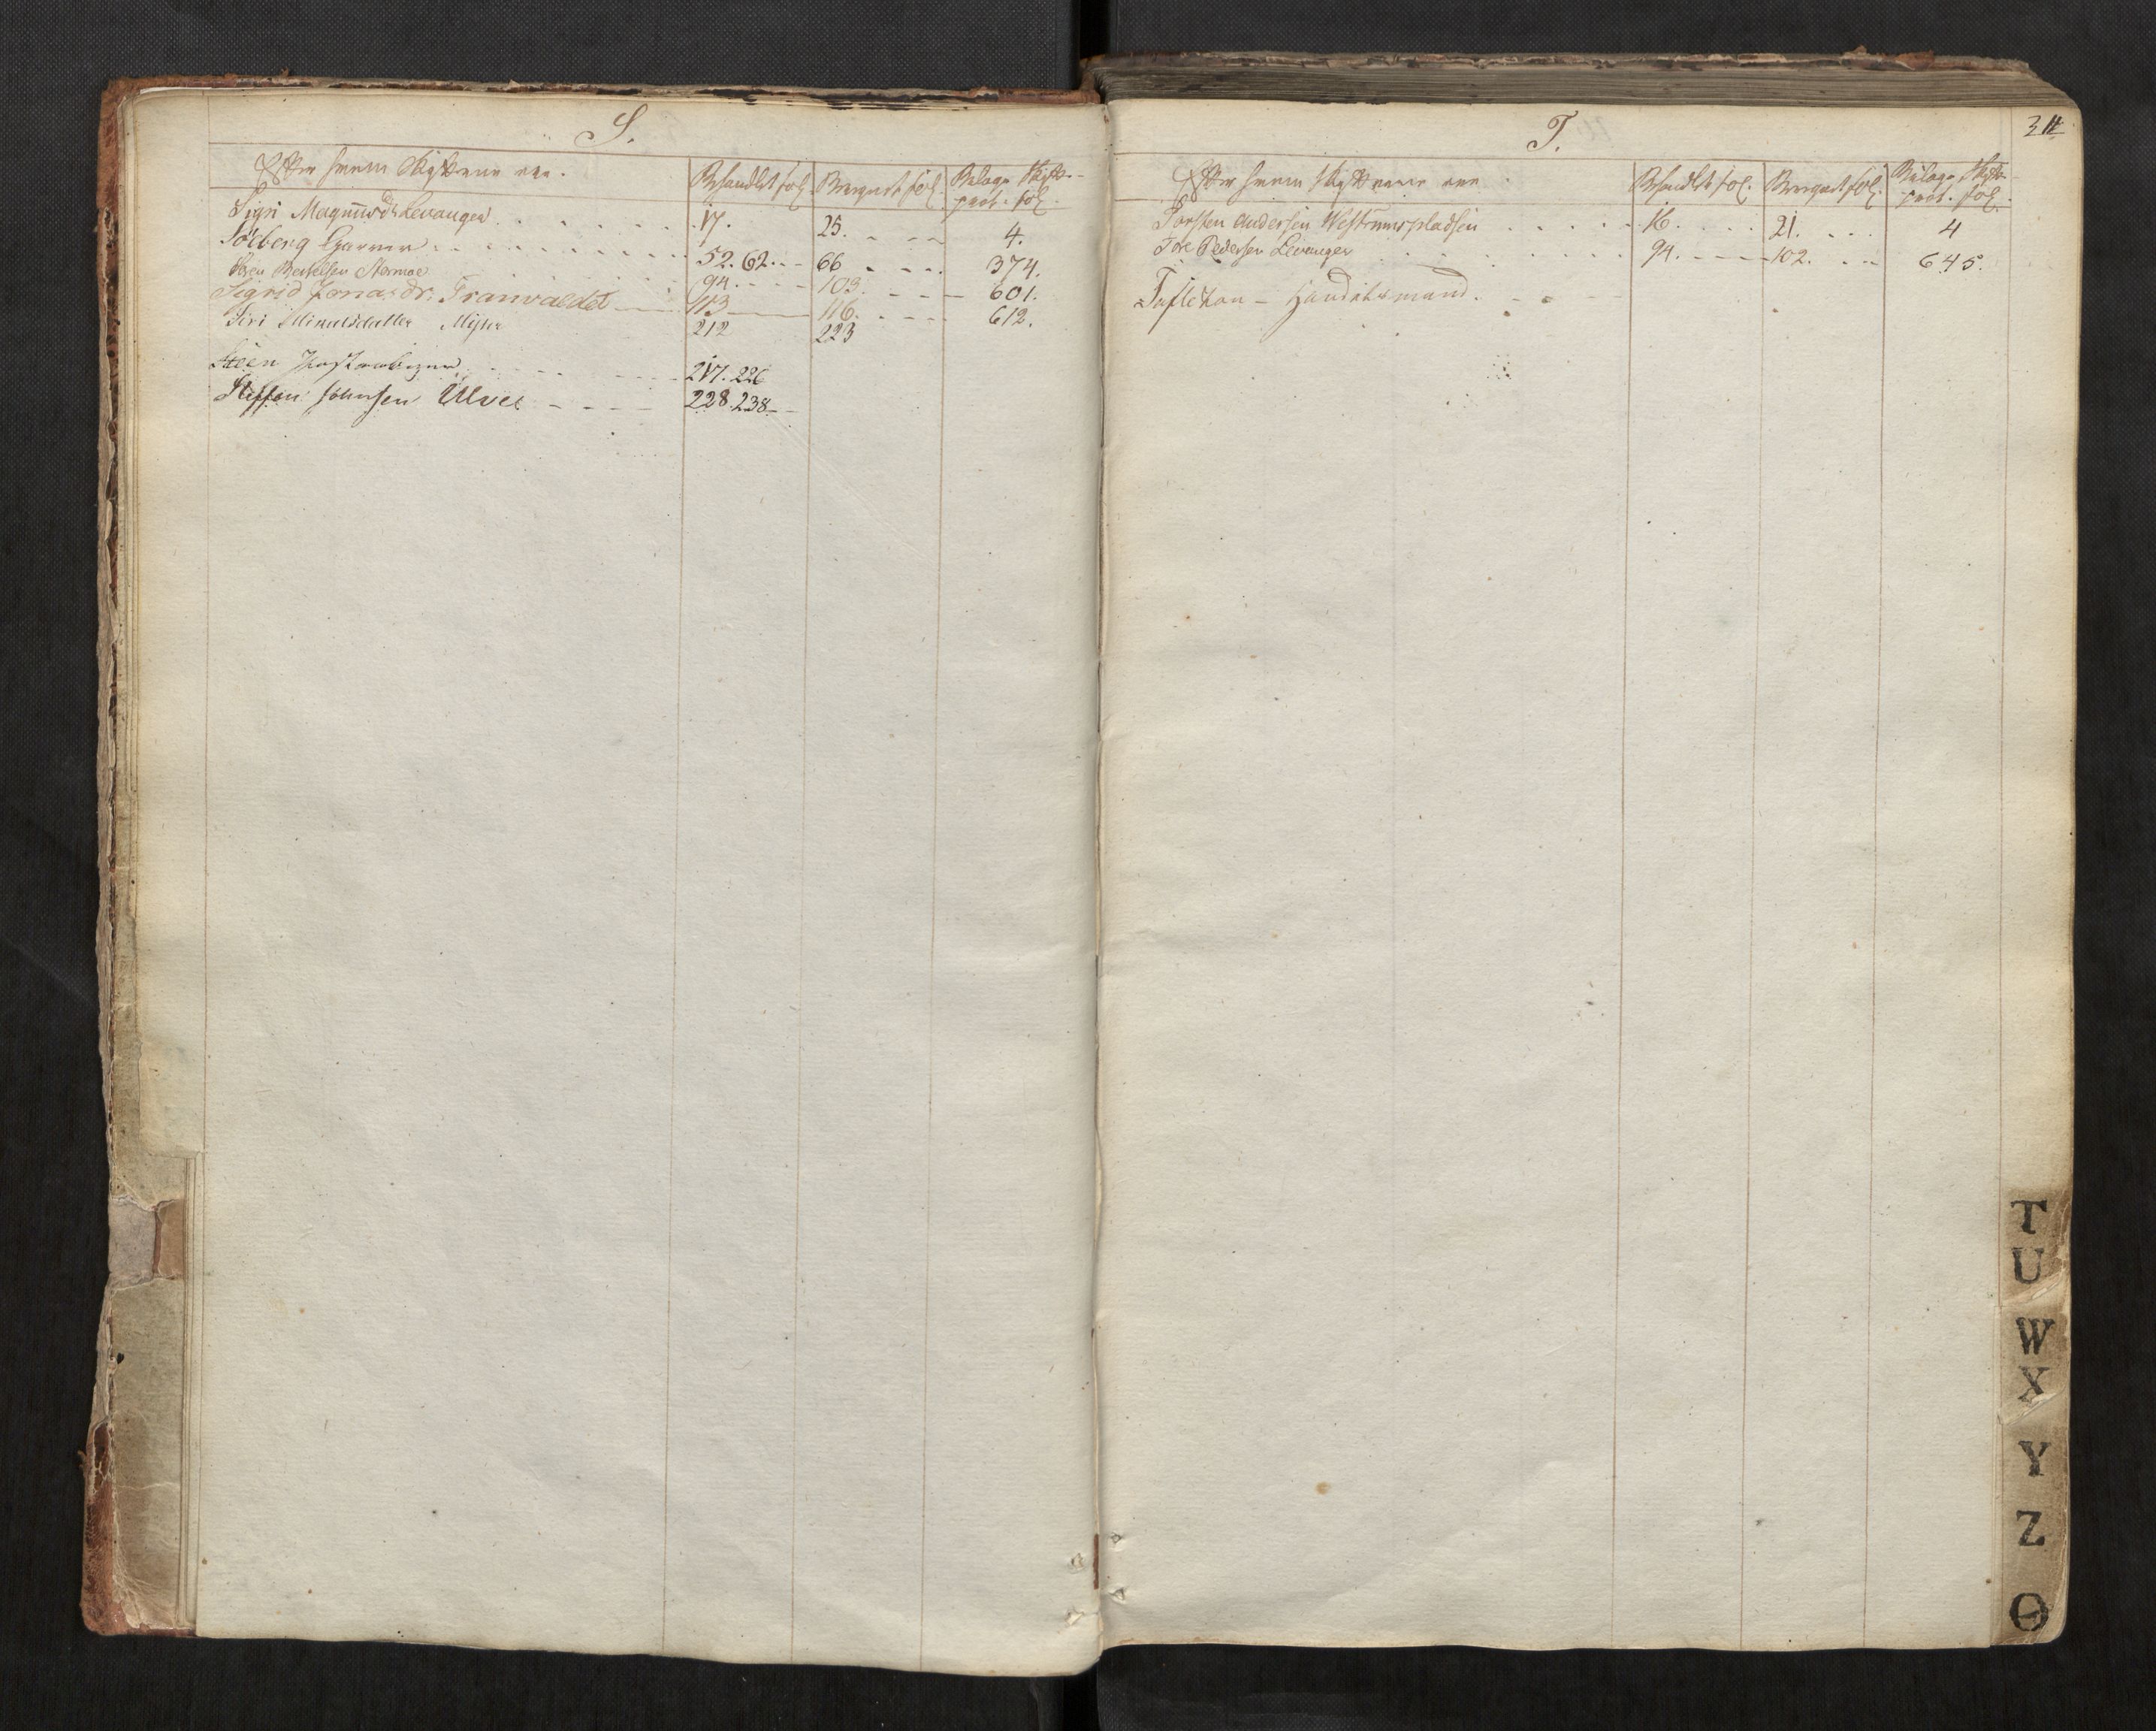 S.
Efter hvem Skiftene ere.
Behandlet fol. Beregnet fol. Bilags Skifte-
prot. fol.
Sigri Magnusdr Levanger . . . . . . 17. 25. - - - 4.
Solberg Garver . . . . . . . 52. 62. - - 66 - - - - 374.
Søren Bertelsen Stormoe 94. - - - - 103. - - - - 601.
Sigrid Jonasdr. Tranvaldet 113 116. - - - - 612.
Siri datter 212 223
Steen . . . . - - - - 217. 226
Steffen Johnsen Ulvei - - - - 228. 238 - -
T.
311
Efter hvem Skiftene ere
Behandlet fol. Beregnet fol. Bilags Skifte-
prot. fol.
Torsten Andersen Westrumspladsen . . . . . 16. . . . . 21. . . . 4
Tore Pedersen Levanger . . . . . . . . 94. - - - - 102. - - - 645.
Handelsmand. - - -
T
U
W
X
Y
Z
Ø